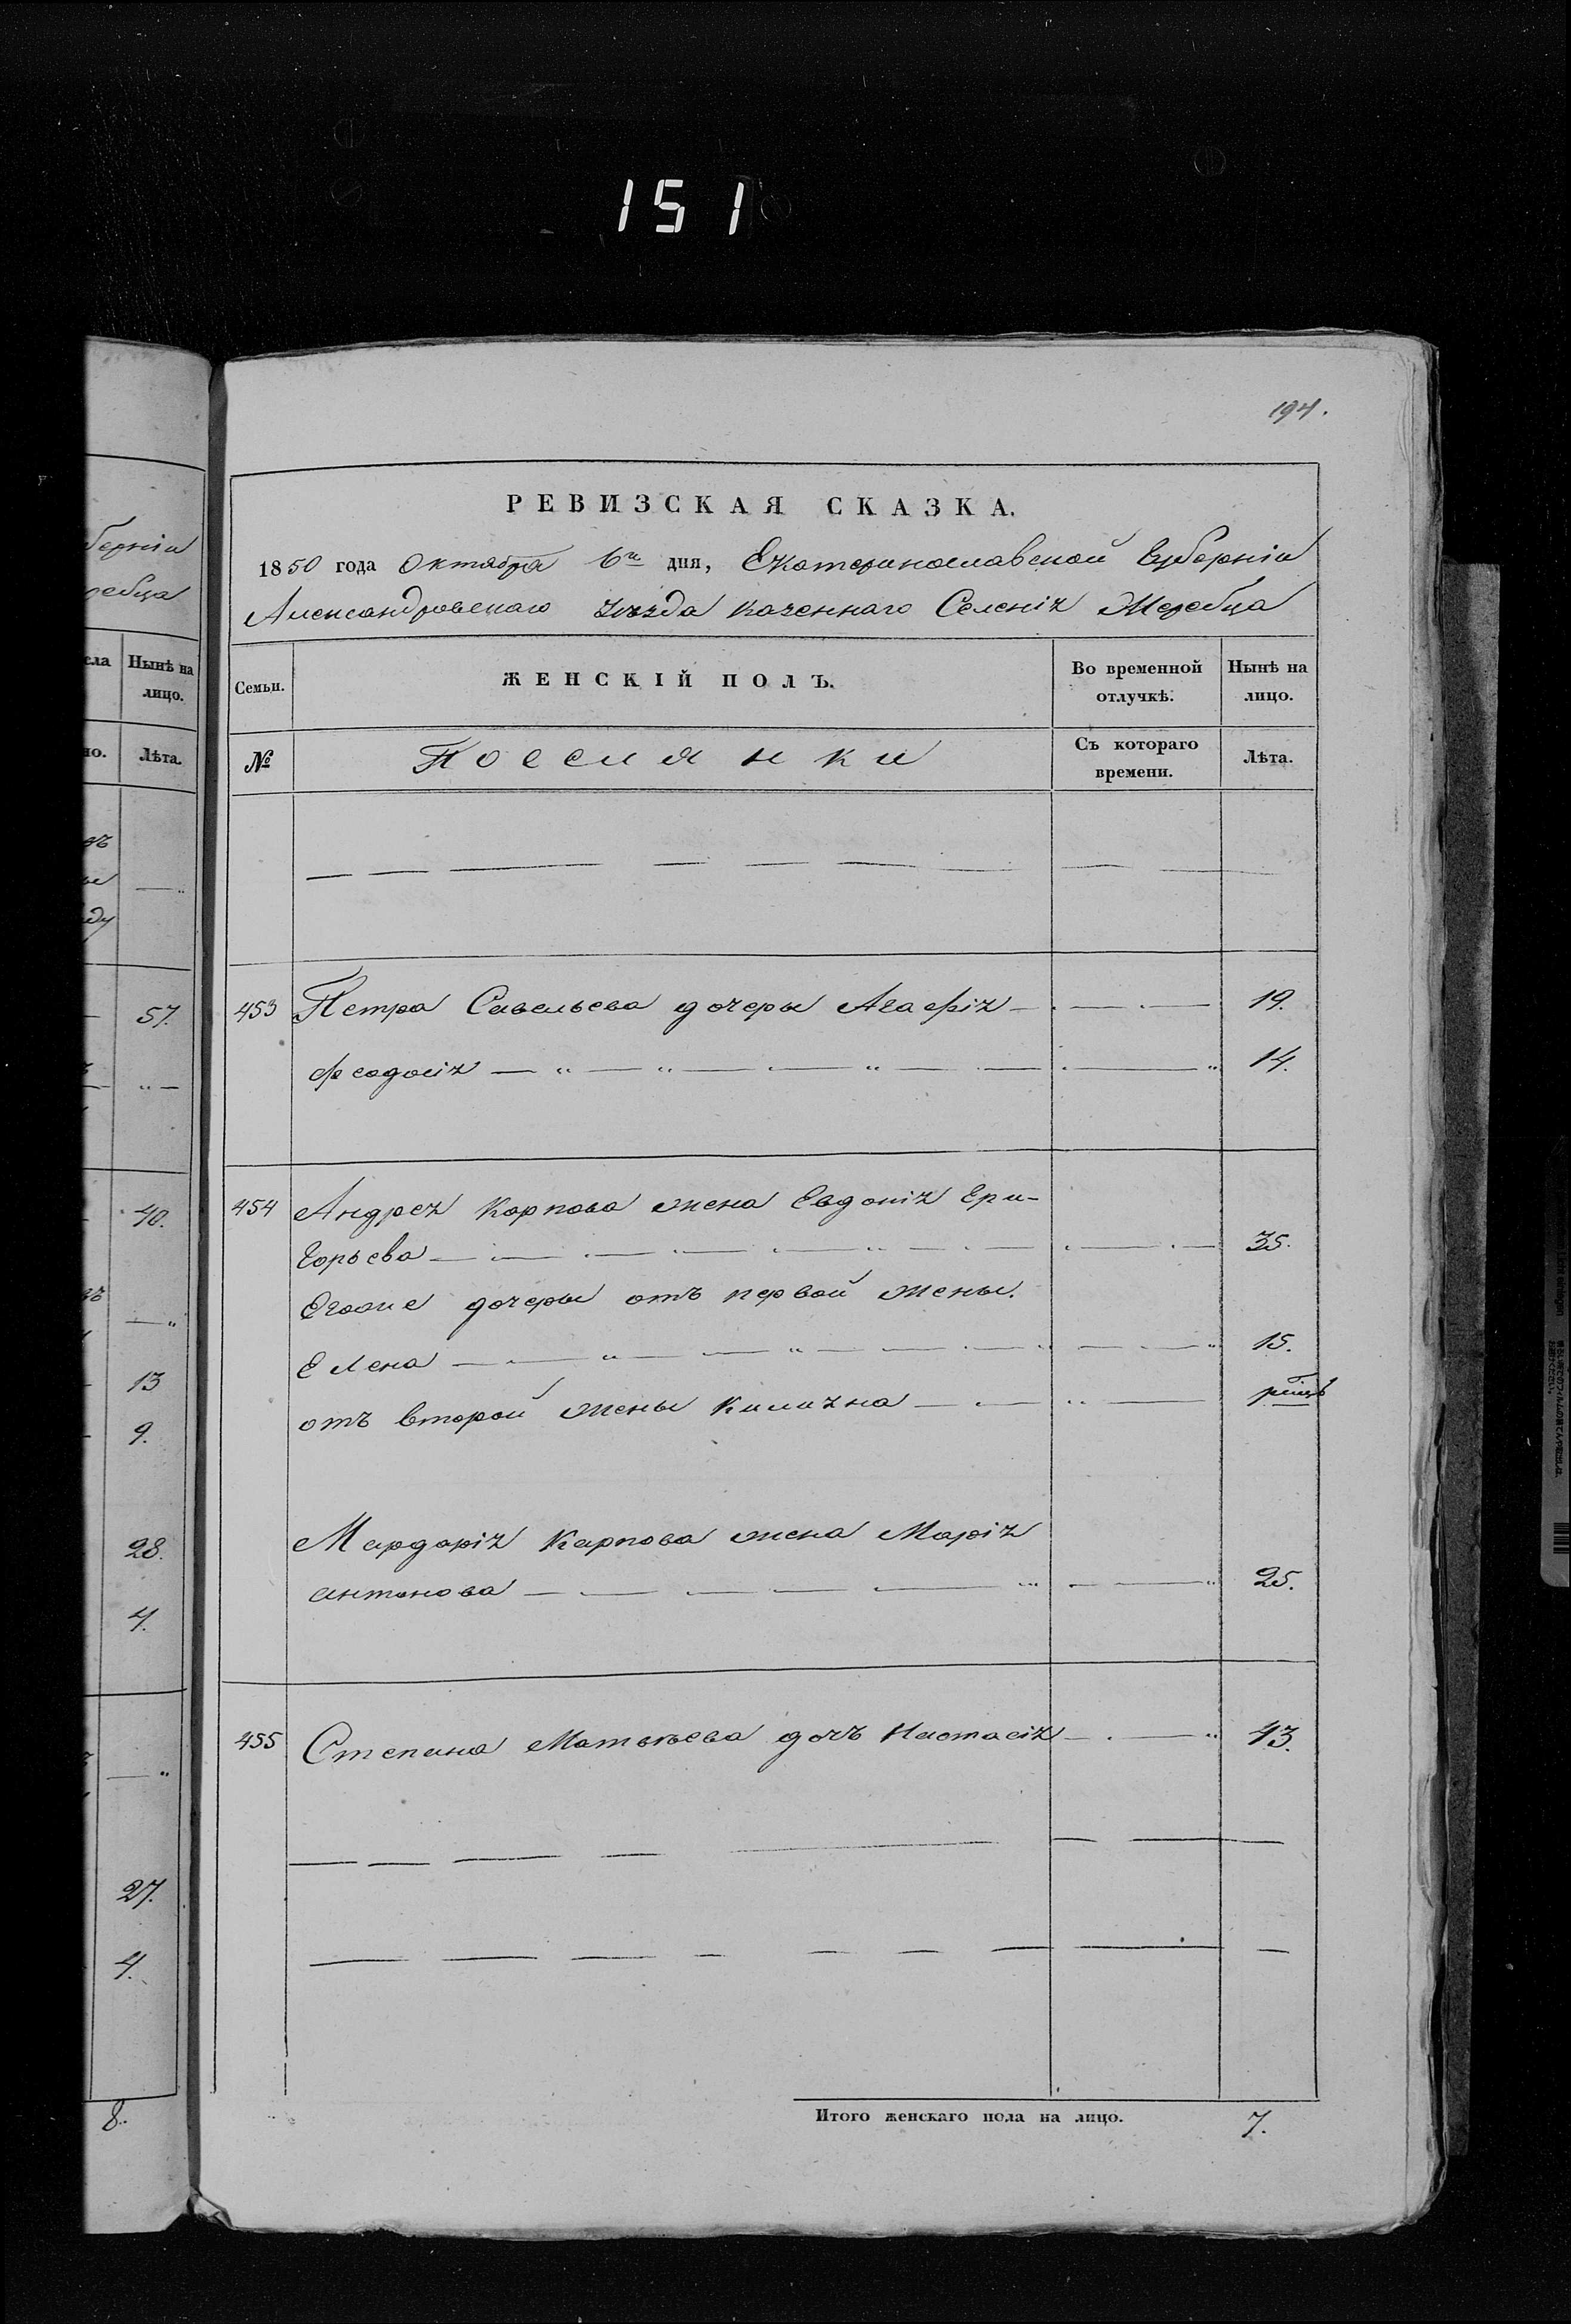 151
194.
РЕВИЗСКАЯ СКАЗКА.
1850 года Октября 6го дня, Екатеринославской Губерніи
Александровскаго уѣзда казеннаго Селенія Жеребца
Семьи. ЖЕНСКІЙ ПОЛЪ. Во временной отлучкѣ. Нынѣ на лицо.
№ Поселянки Съ котораго времени. Лѣта.
453 Петра Савельева дочеры Агафія 19.
Феодосія 14.
454 Андрея Карпова жена Евдокія Гри-
горьева 35.
Егоже дочеры отъ первой жены.
Елена 15.
отъ второй жены
Мардарія Карпова жена Марія
антонова 25.
455 Степана Матвѣева дочь Настасія 43.
Итого женскаго пола на лицо. 7.
берніи
ребца
сла Нынѣ на лицо.
но. Лѣта.
57.
40.
13
9.
28.
4.
27.
4.
8.